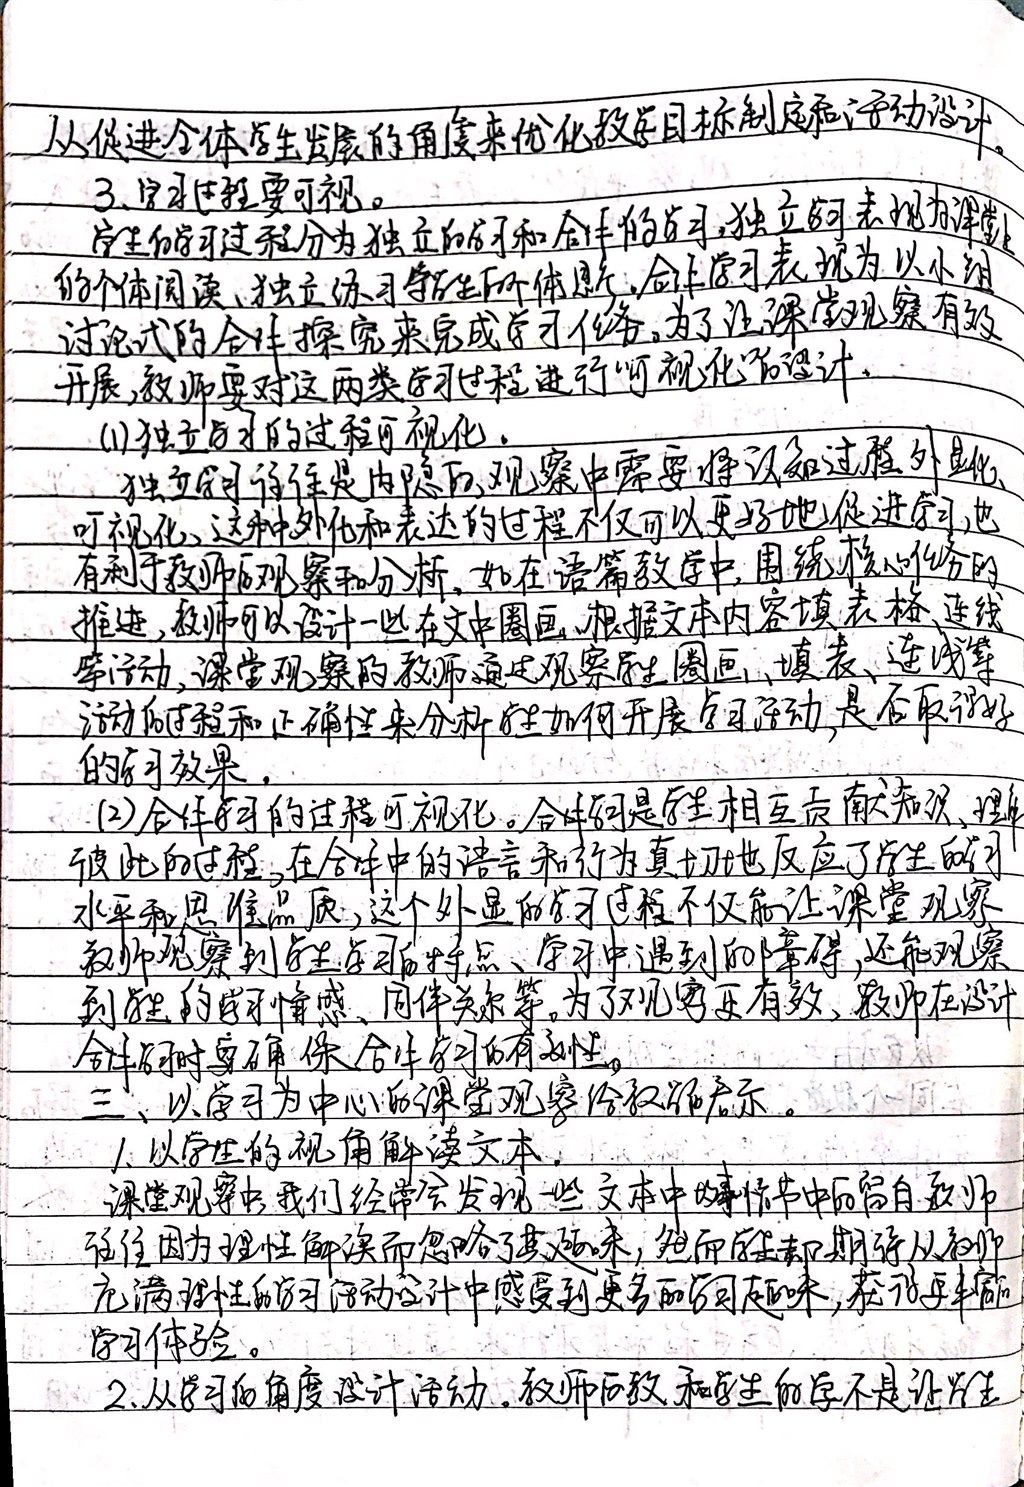 从促进全体学生发展的角度来优化教学目标制定和活动设计。
3、学习过程要可视。
学生的学习过程分为独立的学习和合作的学习,独立学习表现为课堂上
的个体阅读、独立练习等学生的个体思考,合作学习表现为以小组
讨论式的合作探究来完成学习任务。为了让课堂观察有效
开展,教师要对这两类学习过程进行可视化的设计.
(1)独立学习的过程可视化.
独立学习往往是内隐的,观察中需要将认知过程外显化、
可视化、这种外化和表达的过程不仅可以更好地促进学习,也
有利于教师的观察和分析.如在语篇教学中,围绕核心任务的
推进,教师可以设计一些在文中圈画、根据文本内容填表格、连线
等活动,课堂观察的教师通过观察学生圈画、填表、连线等
活动的过程和正确性来分析学生如何开展学习活动,是否取得好
的学习效果.
(2)合作学习的过程可视化。合作学习是学生相互贡献知识、理解
彼此的过程,在合作中的语言和行为真切地反应了学生的学习
水平和思维品质,这个外显的学习过程不仅能让课堂观察
教师观察到学生学习的特点、学习中遇到的障碍,还能观察
到学生的学习情感、同伴关系等。为了观察更有效,教师在设计
合作学习时要确保合作学习的有效性。
三、以学习为中心的课堂观察给教师启示。
1、以学生的视角解读文本.
课堂观察中,我们经常会发现一些文本中故事情节中的留白,教师
往往因为理性解读而忽略了其趣味,然而学生却期待从教师
充满理性的学习活动设计中感受到更多的学习趣味,获得更丰富的
学习体验。
2、从学习的角度设计活动.教师的教和学生的学不是让学生